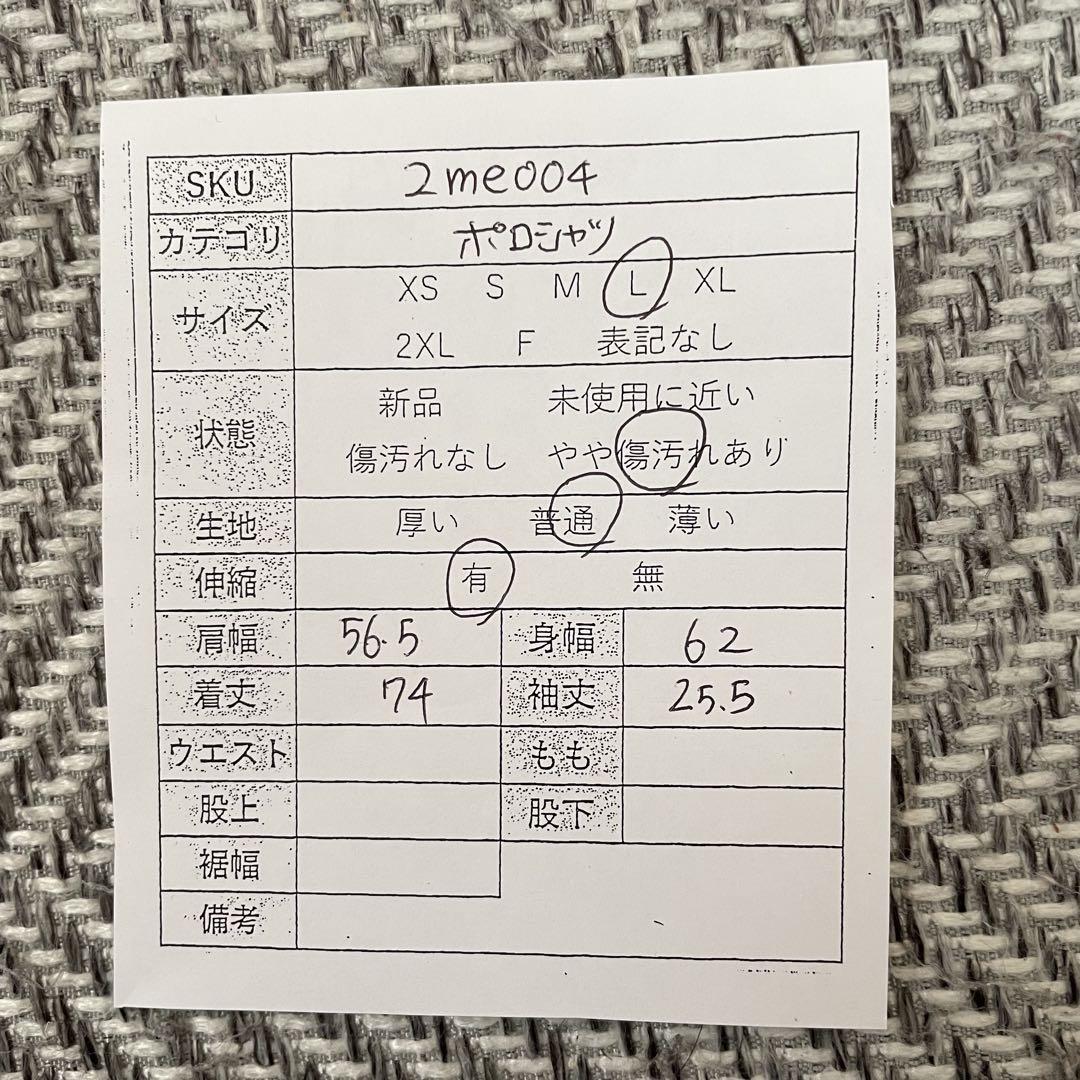 SKU 2me004
カテゴリ ポロシャツ
サイズ XS S M L XL
2XL F 表記なし
状態 新品 未使用に近い
傷汚れなし やや傷汚れあり
生地 厚い 普通 薄い
伸縮 有 無
肩幅 56.5 身幅 62
着丈 74 袖丈 25.5
ウエスト もも
股上 股下
裾幅
備考